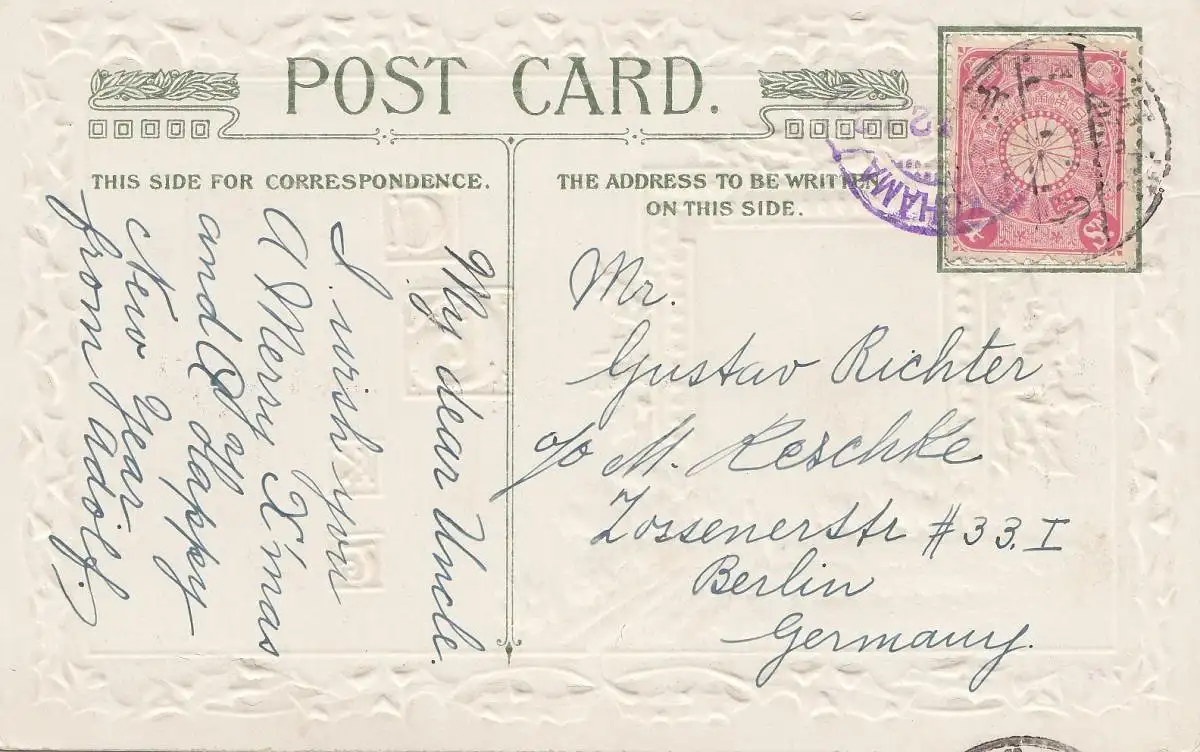 POST CARD.
THIS SIDE FOR CORRESPONDENCE.
THE ADDRESS TO BE WRITTEN
ON THIS SIDE.
My dear Uncle.
I wish you
a Merry X'mas
and a Happy
New Year
from Adolf.
Mr.
Gustav Richter
c/o M. Keschke
Zossenerstr #33. I
Berlin
Germany.
4
HAMA